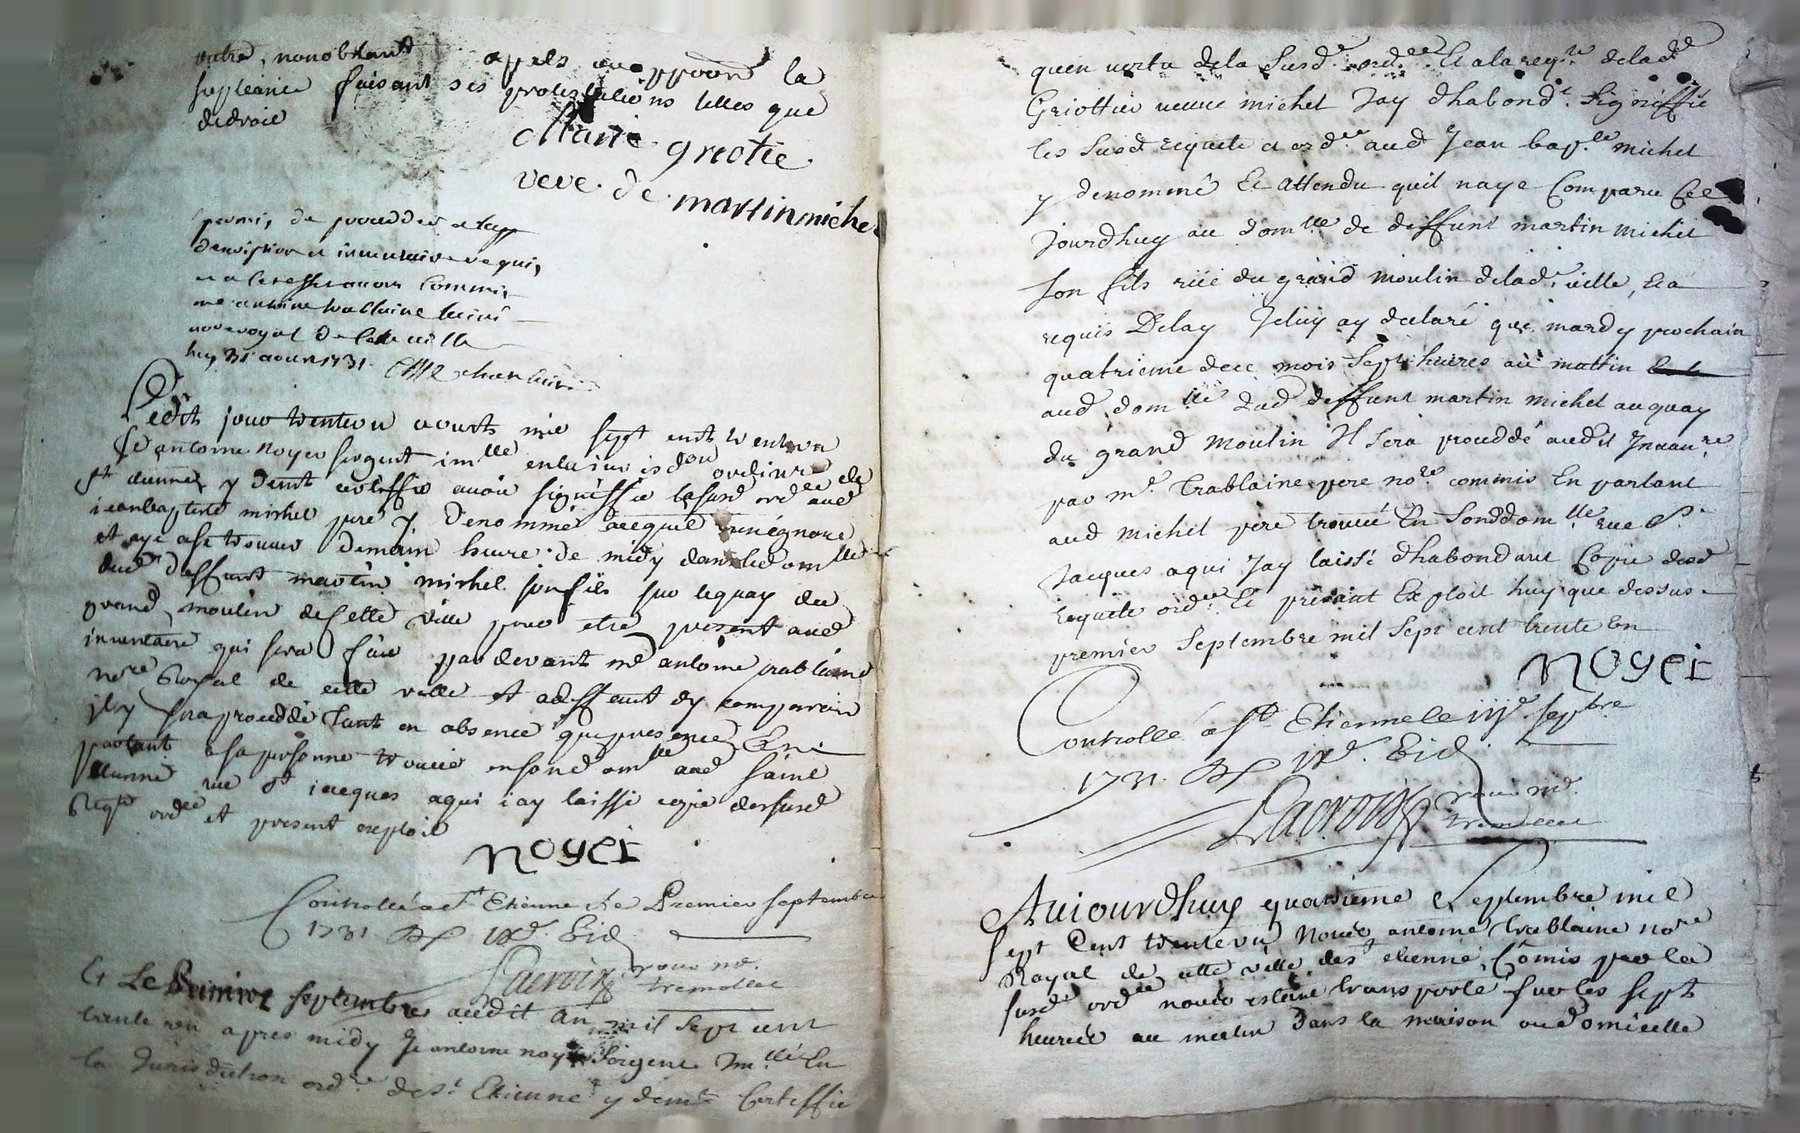 outre, nonobstant appels au ppaond la
supleance faisant ses protestations telles que
de droit
Marie griotie
veve de martin michel
permis de proceder
devission et inventaire requis
et a cet effet avons commis
me antoine trablaine
noe royal de cette ville
huy 31 aout 1731
Cedit jour trente un aousts mil sept cents trente un
Je antoine noyer sergent imlle en la jurisdon ordinre de
st etienne y demt certiffie avoir signiffié la susd ordee aud
jean baptiste michel pere y denommé a ce qu'il n'en ignore
et aye a se trouver demain heure de midy dans le domlle
dud deffunt martin michel son fils sur le quay du
grand moulin de cette ville pour etre present aud
inventaire qui sera fait par devant me antoine trablaine
nore Royal de cette ville et a deffaut dy comparoir
il y sera procedde tant en absence que presence En
parlant a sa personne trouvé en son domlle aud saint
etienne rue st jacques a qui jay laissé copie des susd
Reqte ordee et present exploit
noyer
Controllé a st Etienne le Premier septembre
1731 Rx IXs. Sid
Lacroix pour mr.
tremollet
Et Le premier septembre audit an mil sept cent
trente un apres midy Je antoine noyer sergent Imlle En
la Jurisdiction ordre de st Etienne y demt Certiffie
quen vertu de la Susde. ordee. Et a la reqte de lade
Griottier veuve michel Jay dhabondt. signiffié
les Susd requete et ordee. aud Jean bapte michel
y denommé Et attendu quil naye Comparu Ce
Jourdhuy au domlle de deffunt martin michel
son fils rue du grand moulin de lade. ville, Et a
requis Delay Je luy ay declaré que mardy prochain
quatrieme de ce mois sept heures au mattin
aud. domlle dud deffunt martin michel au quay
du grand moulin Il sera proceddé audit Inventre
par me. trablaine pere nore commis En parlant
aud michel pere trouvé En Sondt domlle rue St
Jacques a qui Jay laissé dhabondant Copie desd
Requete ordee. Et présent Exploit huy que dessus
premier Septembre mil Sept cent trente un
noyer
Controllé a st Etienne le iiije. sepbre
1731. Rx IXs. Sid
Lacroix pour mr.
tremollet
Aujourdhuy quatrieme Septembre mil
sept Cent trente un Nous antoine trablaine nore
Royal de cette ville de st etienne, Comis par la
susde ordee nous estant transporté sur les sept
heures au matin dans la maison ou domicille